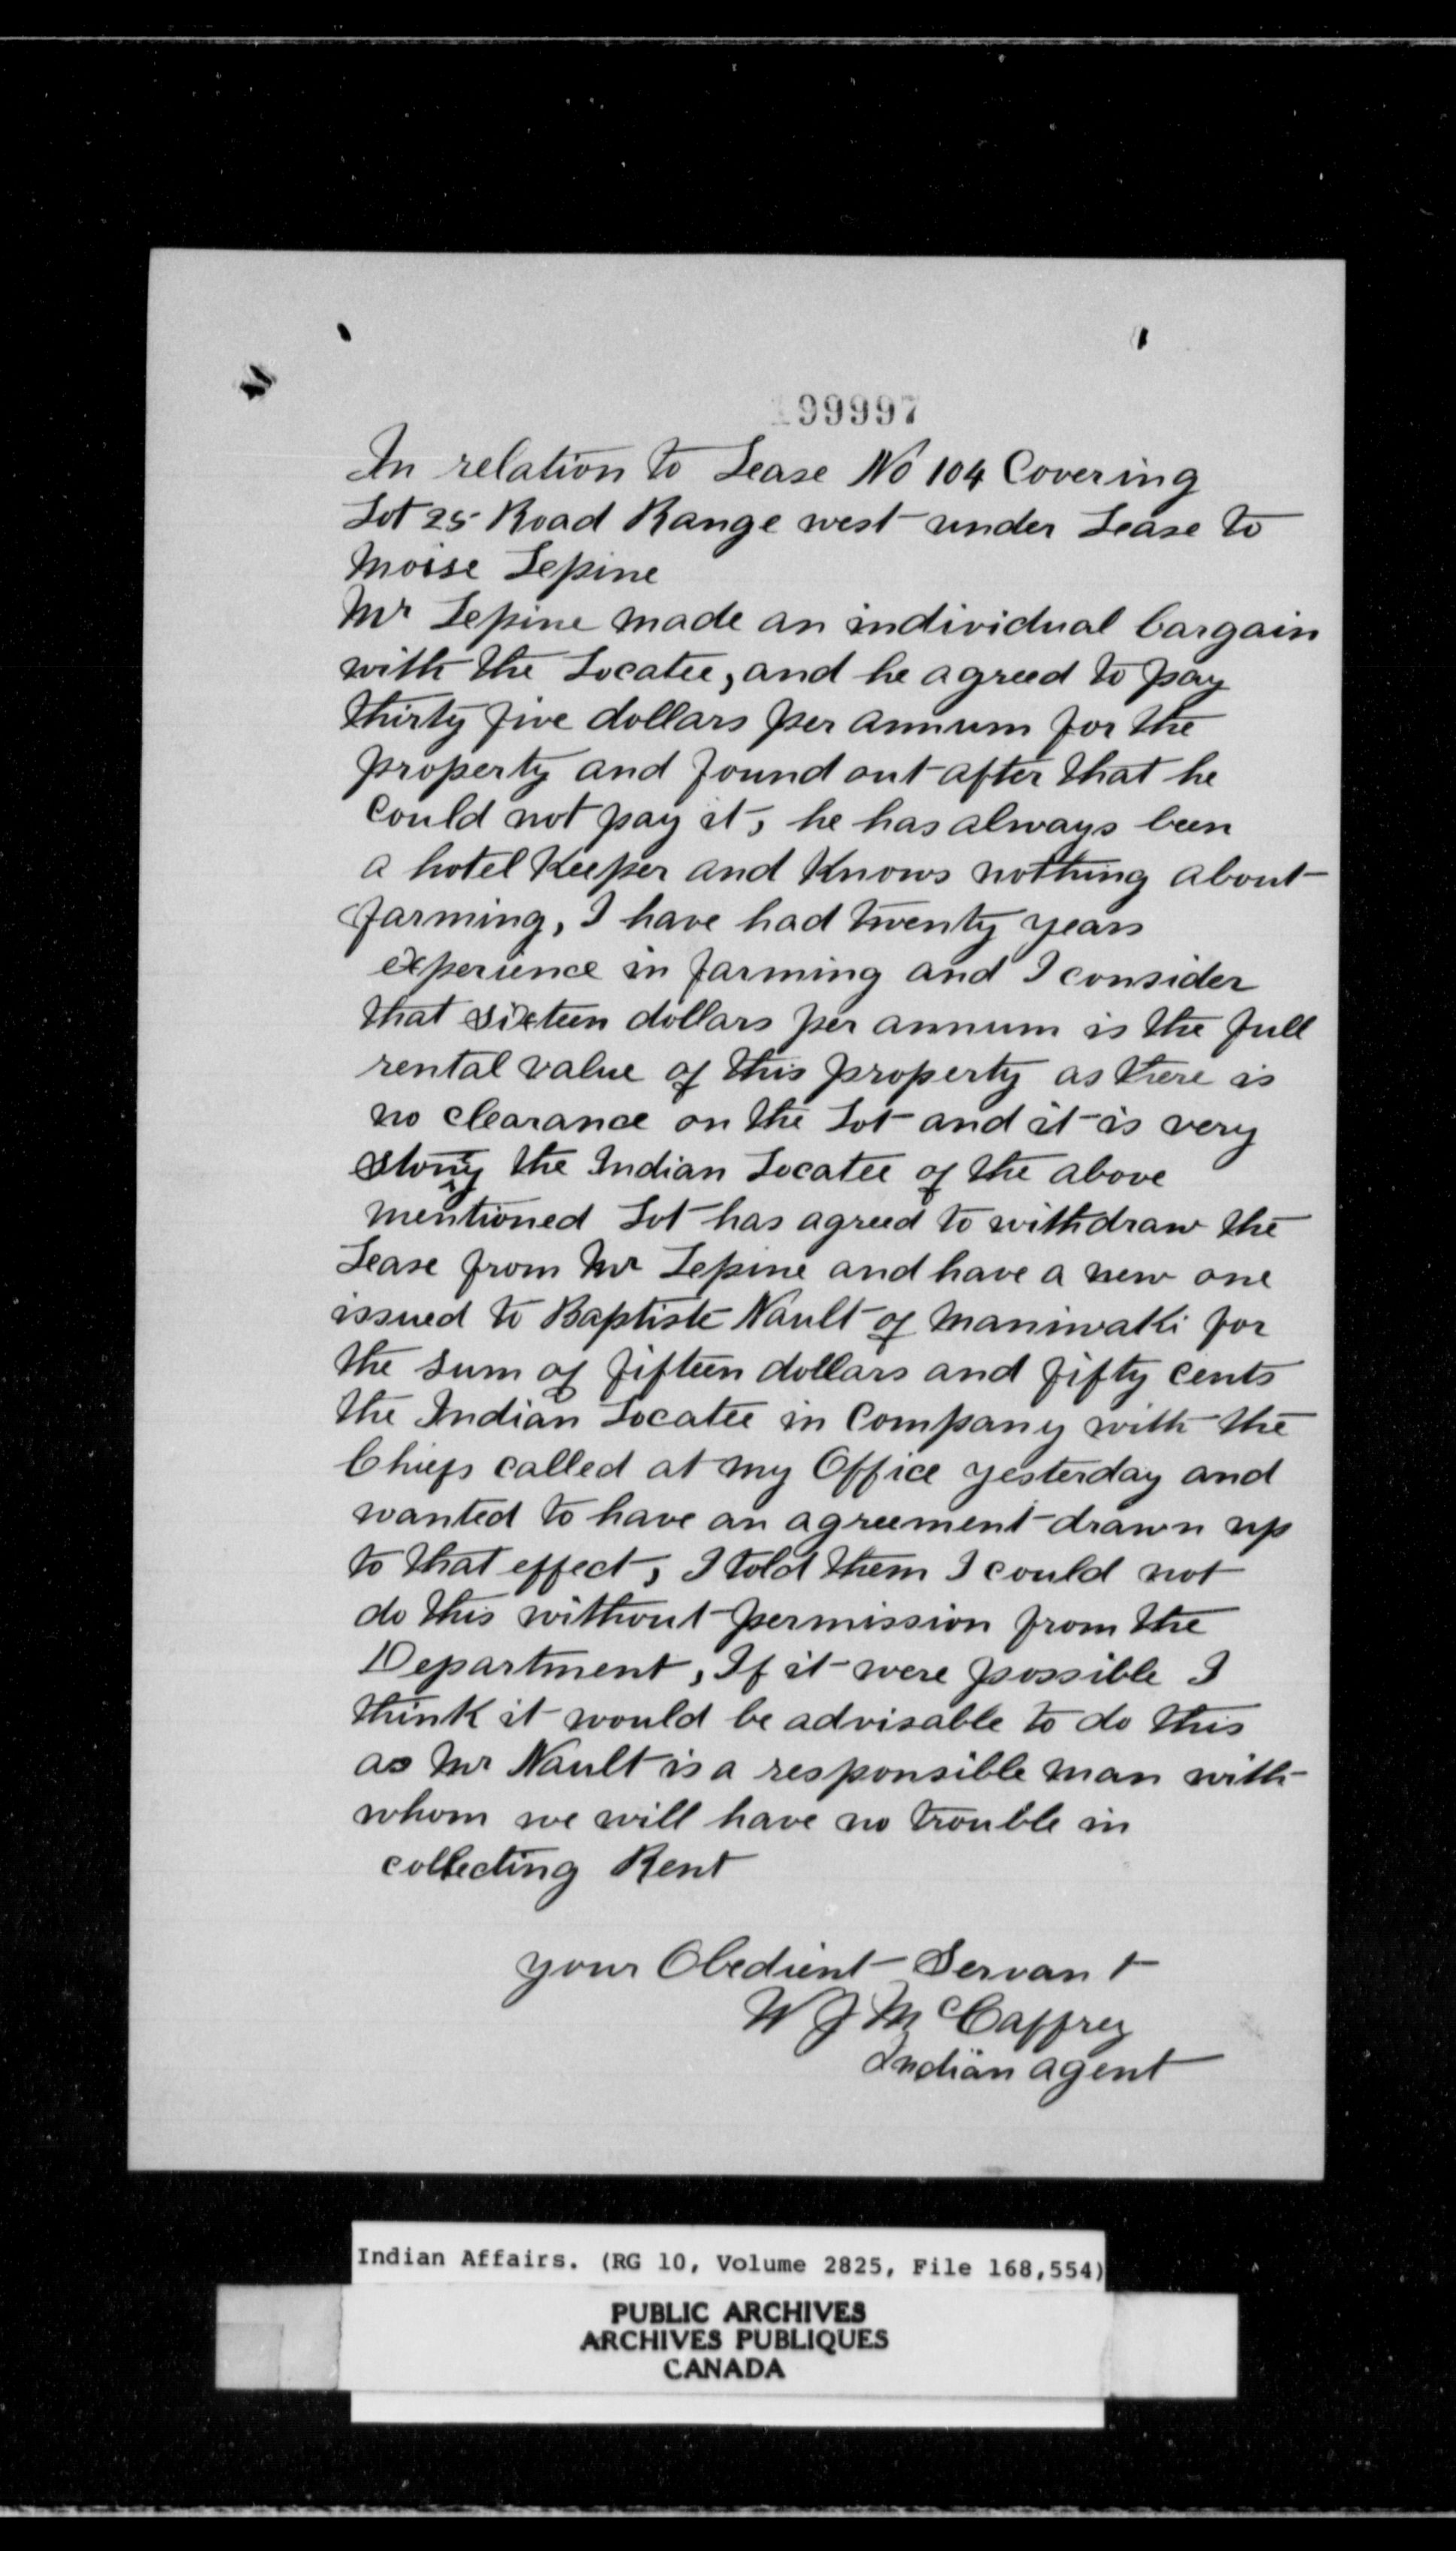 199997
In relation to Lease No 104 Covering
Lot 25 Road Range west under Lease to
Moise Lepine
Mr Lepine made an individual bargain
with the Locatee, and he agreed to pay
thirty five dollars per annum for the
property and found out after that he
could not pay it, he has always been
a hotel Keeper and Knows nothing about
farming, I have had twenty years
experience in farming and I consider
that sixteen dollars per annum is the full
rental value of this property as there is
no clearance on the Lot and it is very
stony the Indian Locatee of the above
mentioned Lot has agreed to withdraw the
Lease from Mr Lepine and have a new one
issued to Baptiste Nault of Maniwaki for
the sum of fifteen dollars and fifty cents
the Indian Locatee in Company with the
Chiefs called at my Office yesterday and
wanted to have an agreement drawn up
to that effect, I told them I could not
do this without permission from the
Department, If it were possible I
think it would be advisable to do this
as Mr Nault is a responsible man with
whom we will have no trouble in
collecting Rent
your Obedient Servant
W J McCaffrey
Indian agent
Indian Affairs. (RG 10, Volume 2825, File 168,554)
PUBLIC ARCHIVES
ARCHIVES PUBLIQUES
CANADA